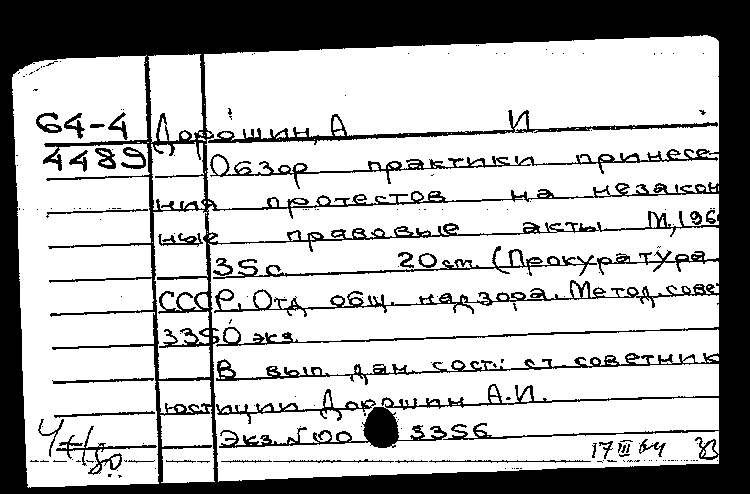 64-4 Дорошин, А И
4489 Обзор практики принесе-
ния протестов на незакон
ные правовые акты М,196
35с. 20см. (Прокуратура
СССР. Отд общ. надзора. Метод. сове
3350 экз.
В вып. дан. сост: ст. советник
юстиции Дорошин А.И.
Экз. N 100 3356
17 III 64